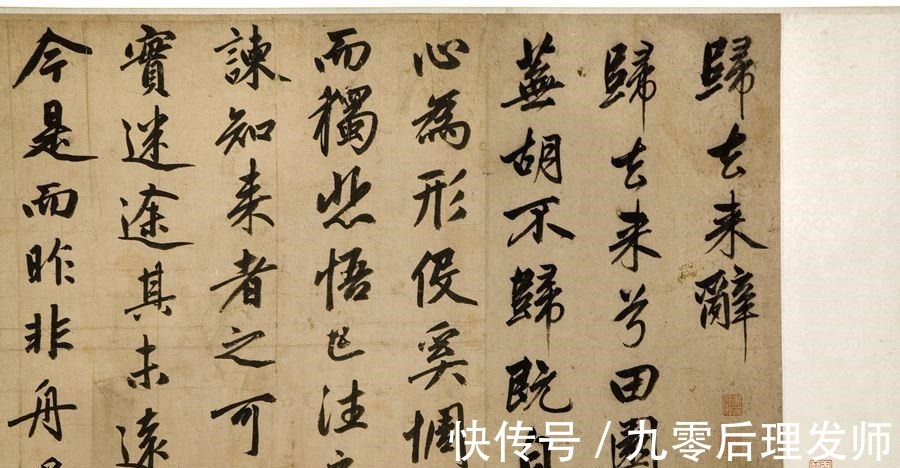 歸去来辭
歸去来兮田園
蕪胡不歸既自
心為形役奚惆
而獨悲悟已往
諫知来者之可
實迷途其未遠
今是而昨非舟
快传号 / 九零后理发师